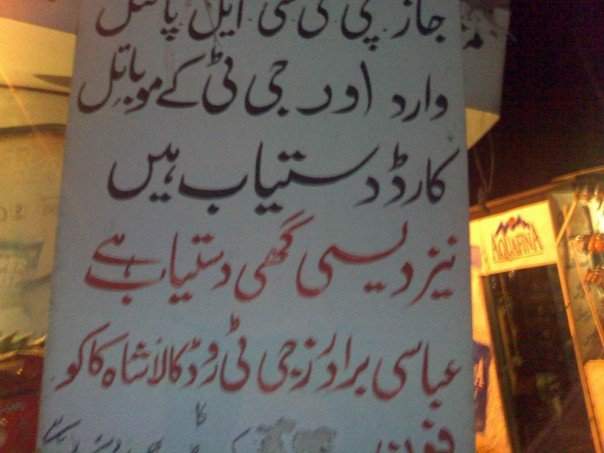 جاز پی ٹی سی ایل پاسل
وارد اور جی ٹی کے موبائل
کارڈ دستیاب ہیں
نیز دیسی گھی دستیاب ہے
عباسی برادرز جی ٹی روڈ کالا شاہ کاکو
فون
AQUAFINA